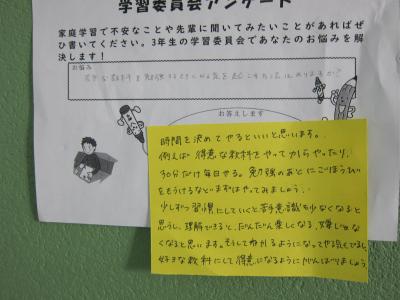 学習委員会アンケート
家庭学習で不安なことや先輩に聞いてみたいことがあればぜ
ひ書いてください。3年生の学習委員会であなたのお悩みを解
決します！
お悩み
苦手な教科を勉強するときにやる気を起こす方法はありますか？
お答えします
時間を決めてやるといいと思います。
例えば 得意な教科をやってからやったり、
30分だけ毎日やる。勉強のあとにごほうび
をもうけるなどまずはやってみましょう。
少しずつ習慣にしていくと苦手意識も少なくなると
思うし、理解できると、だんだん楽しくなる、嫌じゃな
くなると思います。そうしてわかるようになってやる気もでるし、
好きな教科にして得意になるようにがんばりましょう